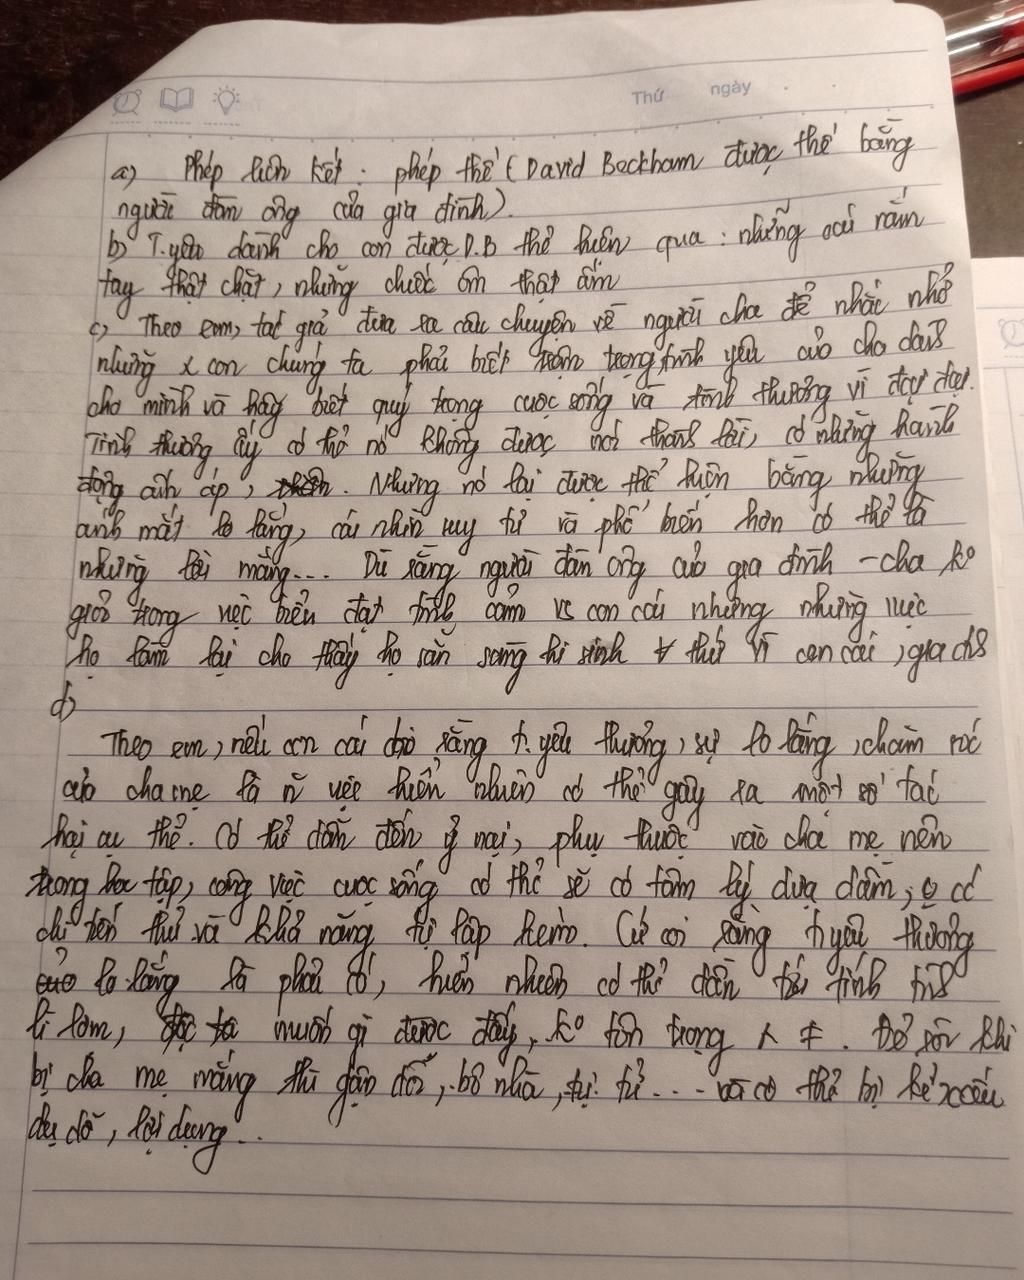 Thứ ngày
a) Phép liên kết: phép thế (David Beckham được thế bằng
người đàn ông của gia đình).
b) T.yêu dành cho con được D.B thể hiện qua: những cái nắm
tay thật chặt, những chiếc ôm thật ấm
c) Theo em, tác giả đưa ra câu chuyện về người cha để nhắc nhở
những x con chúng ta phải biết trân trọng tình yêu của cha dành
cho mình và hãy biết quý trọng cuộc sống và tình thương vĩ đại đại.
Tình thương ấy có thể nó không được nói thành lời, có những hành
động ành áp, . Nhưng nó lại được thể hiện bằng những
ánh mắt lo lắng, cái nhìn uy tư và phổ biến hơn có thể là
những lời mắng... Dù rằng người đàn ông của gia đình - cha ko
giỏi trong việc biểu đạt tình cảm vs con cái nhưng những việc
họ làm lại cho thấy họ sẵn sàng hi sinh ∀ thứ vì con cái, gia đ
d)
Theo em, nếu con cái cho rằng t. yêu thương, sự lo lắng, chăm sóc
của cha mẹ là n~ việc hiển nhiên có thể gây ra một số tác
hại cụ thể. Có thể dẫn đến ỷ nại, phụ thuộc vào cha mẹ nên
trong học tập, công việc cuộc sống có thể sẽ có tâm lý dựa dẫm, có
chí tiến thủ và khả năng tự lập kém. Cứ coi rằng t.yêu thương
lo lắng là phải có, hiển nhiên có thể dẫn tới tính tình
lì lợm, muốn gì được đấy, ko tôn trọng ≠. Để rồi khi
bị cha mẹ mắng thì giận dỗi, bỏ nhà, tự tử... và có thể bị kẻ xấu
dụ dỗ, lợi dụng...